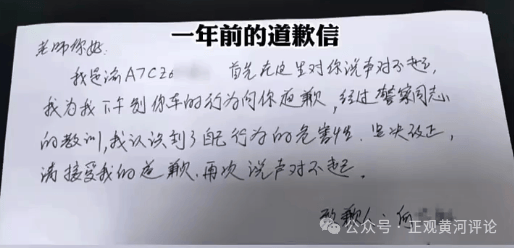 一年前的道歉信
老师你好:
我是渝A7CZ6 首先在这里对你说声对不起,
我为我下午别你车的行为向你道歉,经过警察同志
的教训,我认识到了自己行为的危害性.坚决改正,
请接受我的道歉.再次说声对不起.
致歉人:何
公众号·正观黄河评论